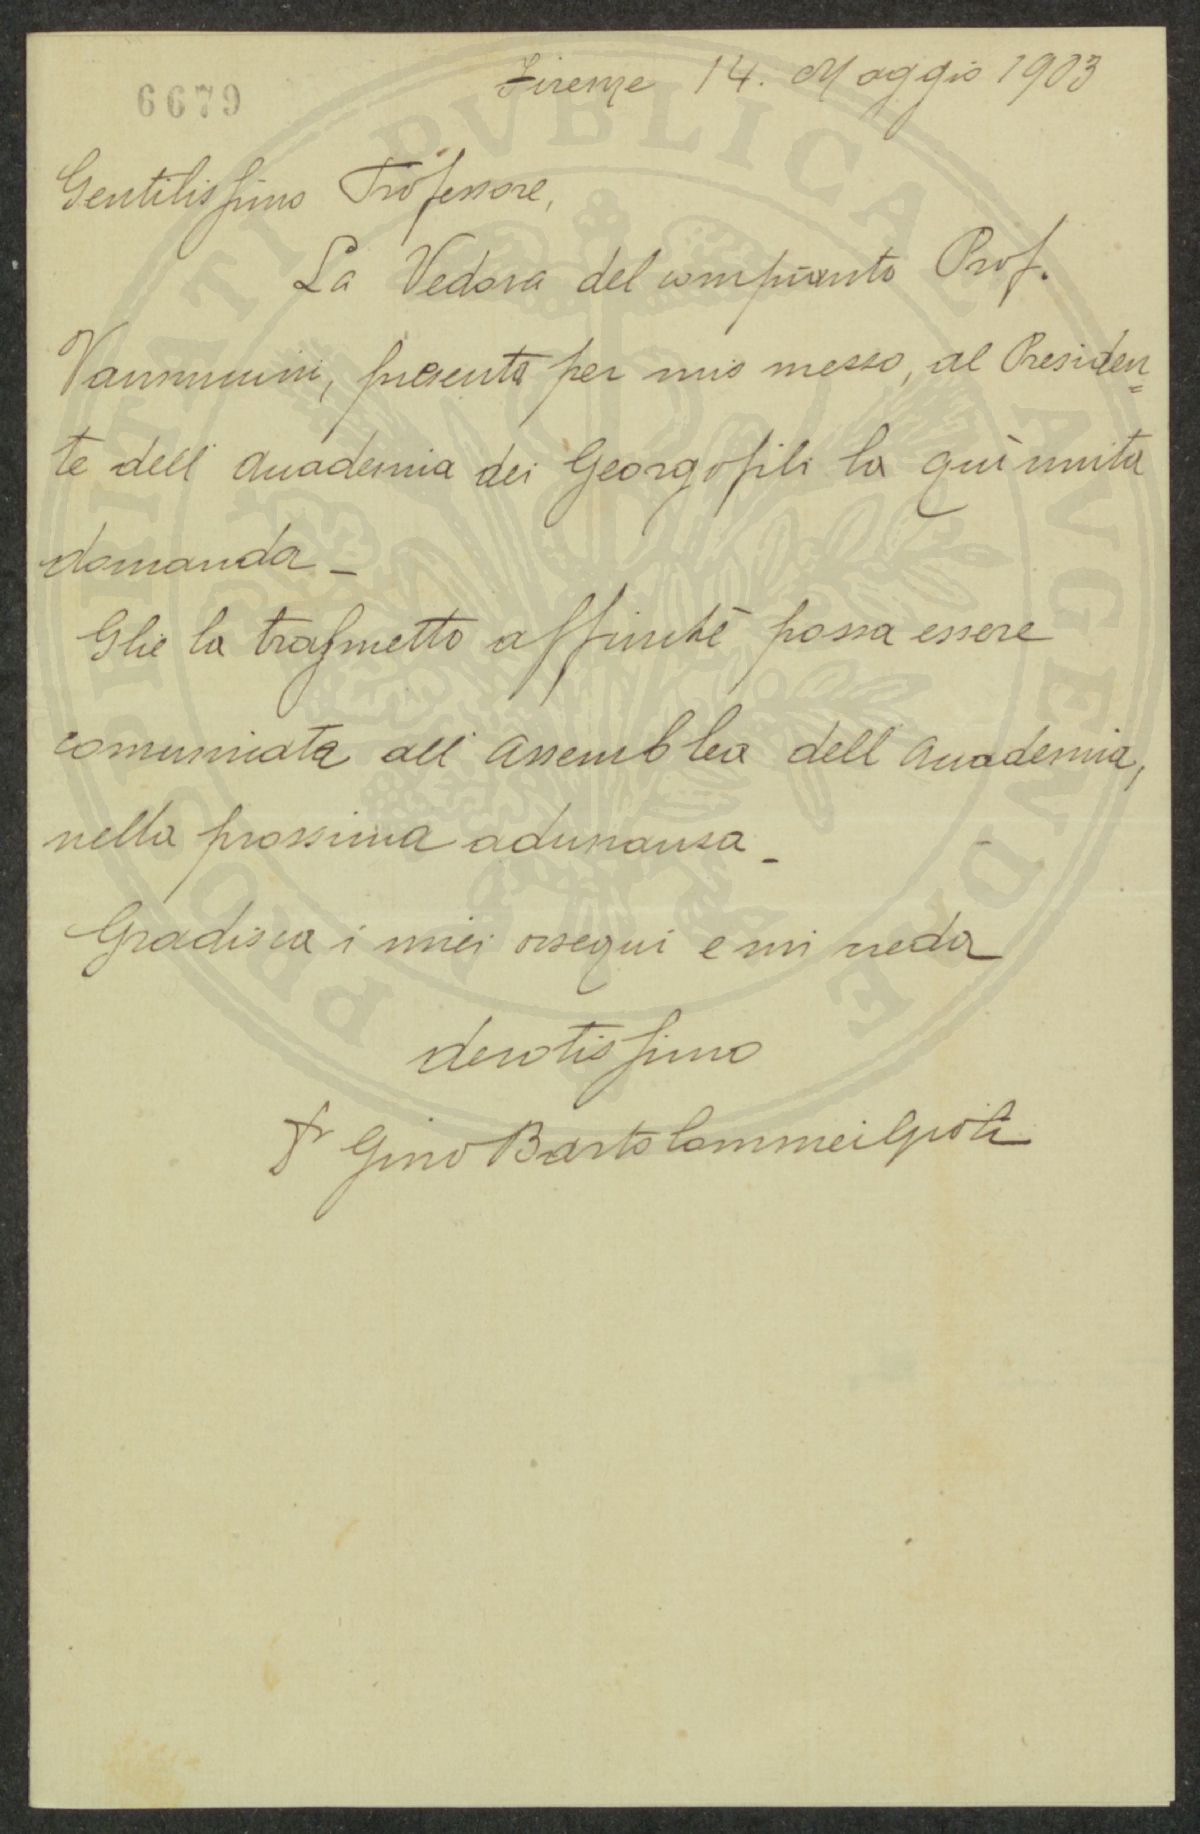 6679
Firenze 14. Maggio 1903
Gentilissimo Professore,
La Vedova del compianto Prof.
Vannuccini, presenta per mio messo, al Presiden=
te dell' Accademia dei Georgofili la quì unita
domanda_
Glie la trasmetto affinchè possa essere
comunicata all' Assemblea dell' Accademia,
nella prossima adunanza_
Gradisca i miei ossequi e mi creda
devotissimo
Dr Gino Bartolommei Gioli
PROSPERITATI PVBLICAE AVGENDAE